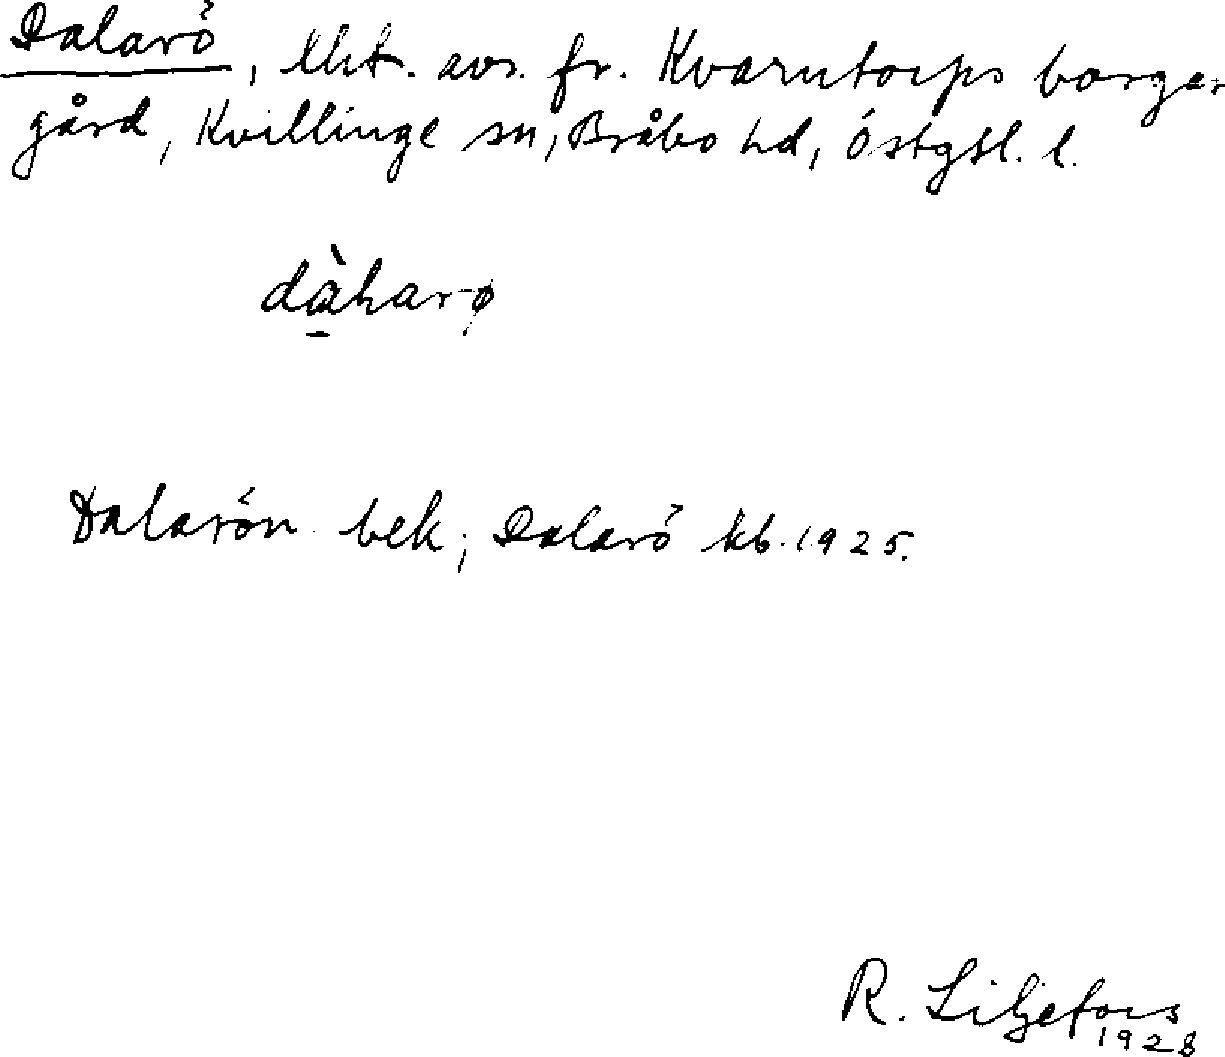 Dalarö, lht. avs. fr. Kvarntorps borgar
gård, Kvillinge sn, Bråbo hd, Östgtl. l.
dàharø
Dalarön bek; Dalarö kb. 1925.
R. Liljefors
1928